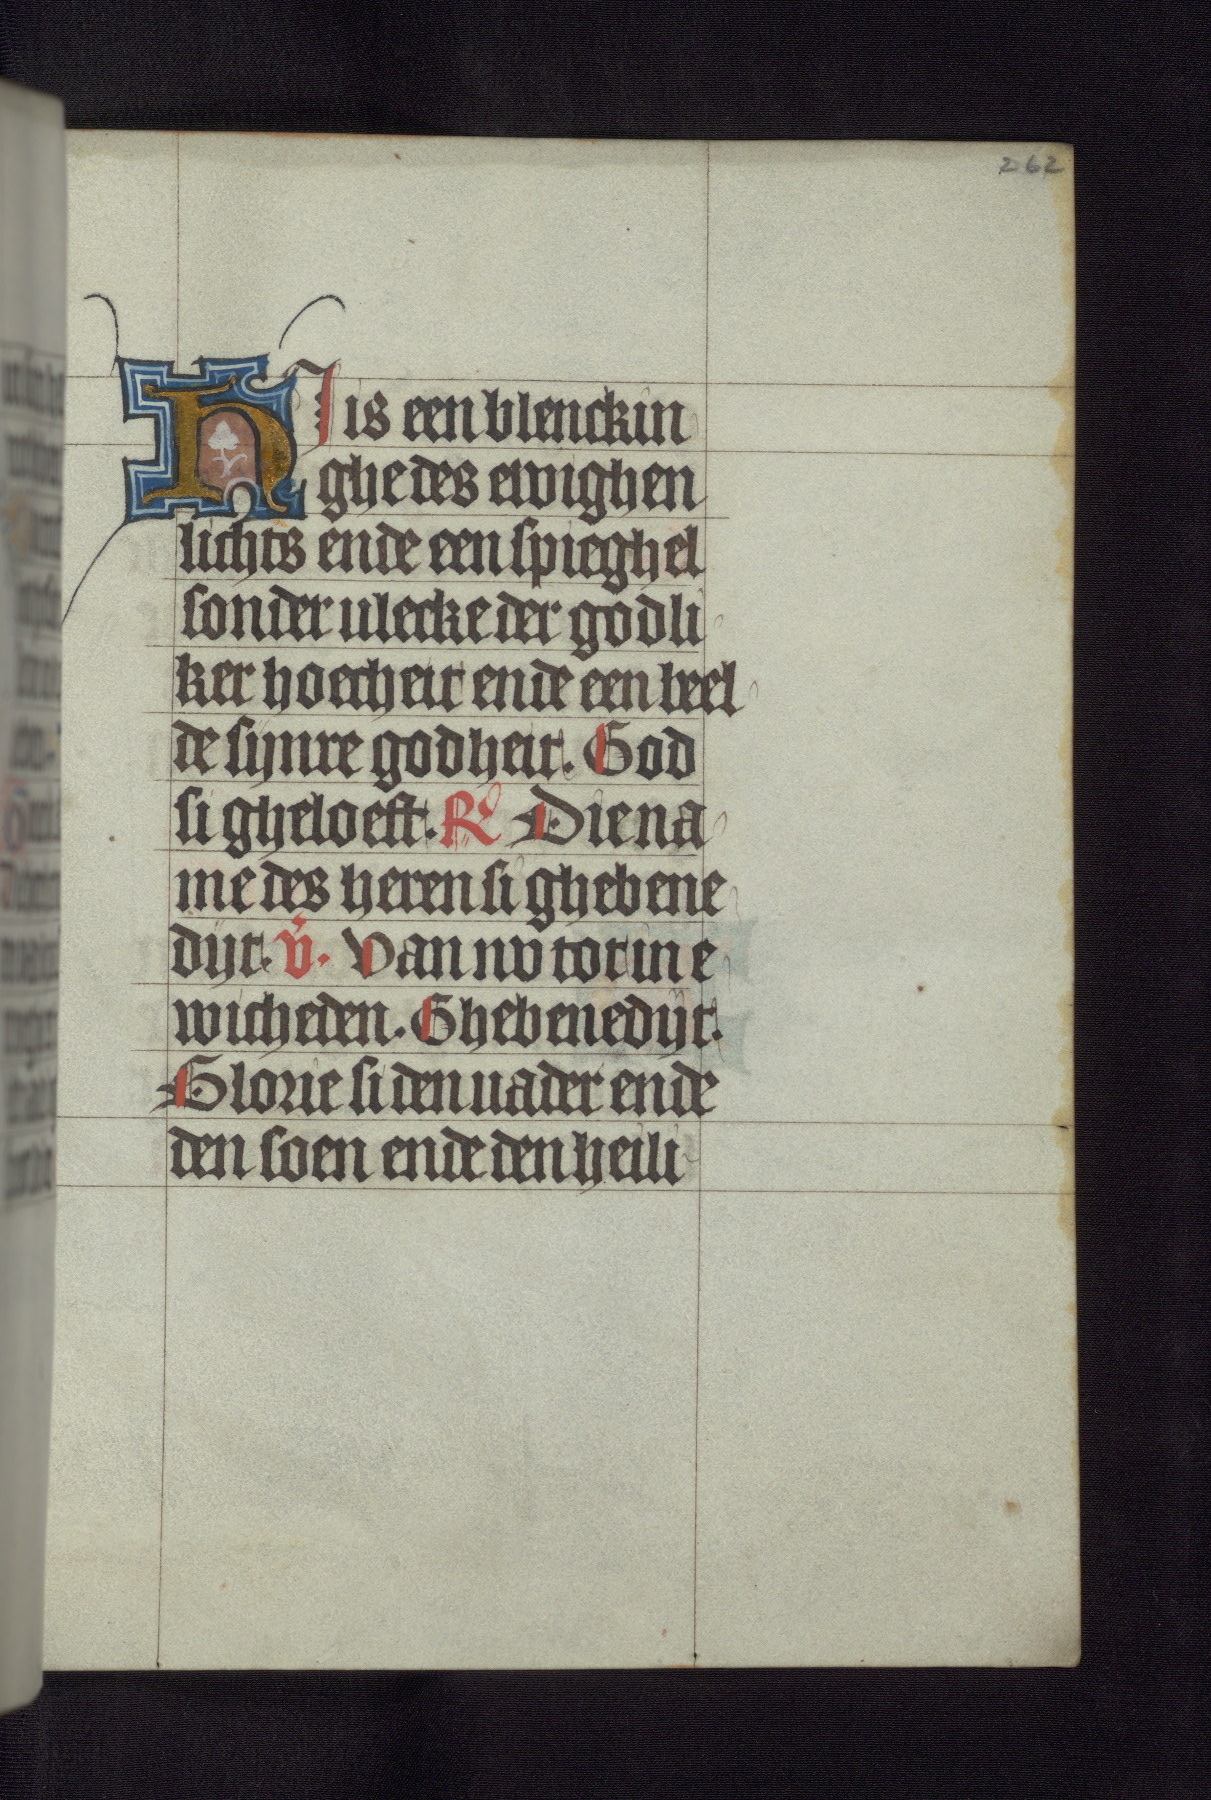 262
HI is een blenckin
ghe des ewighen
lichts ende een spieghel
sonder vlecke der godli
ker hoecheit ende een beel
de sijnre godheit. God
si gheloeft. R Die na
me des heren si ghebene
dijt. V. Van nv tot in e
wicheden. Ghebenedijt.
Glorie si den uader ende
den soen ende den heili